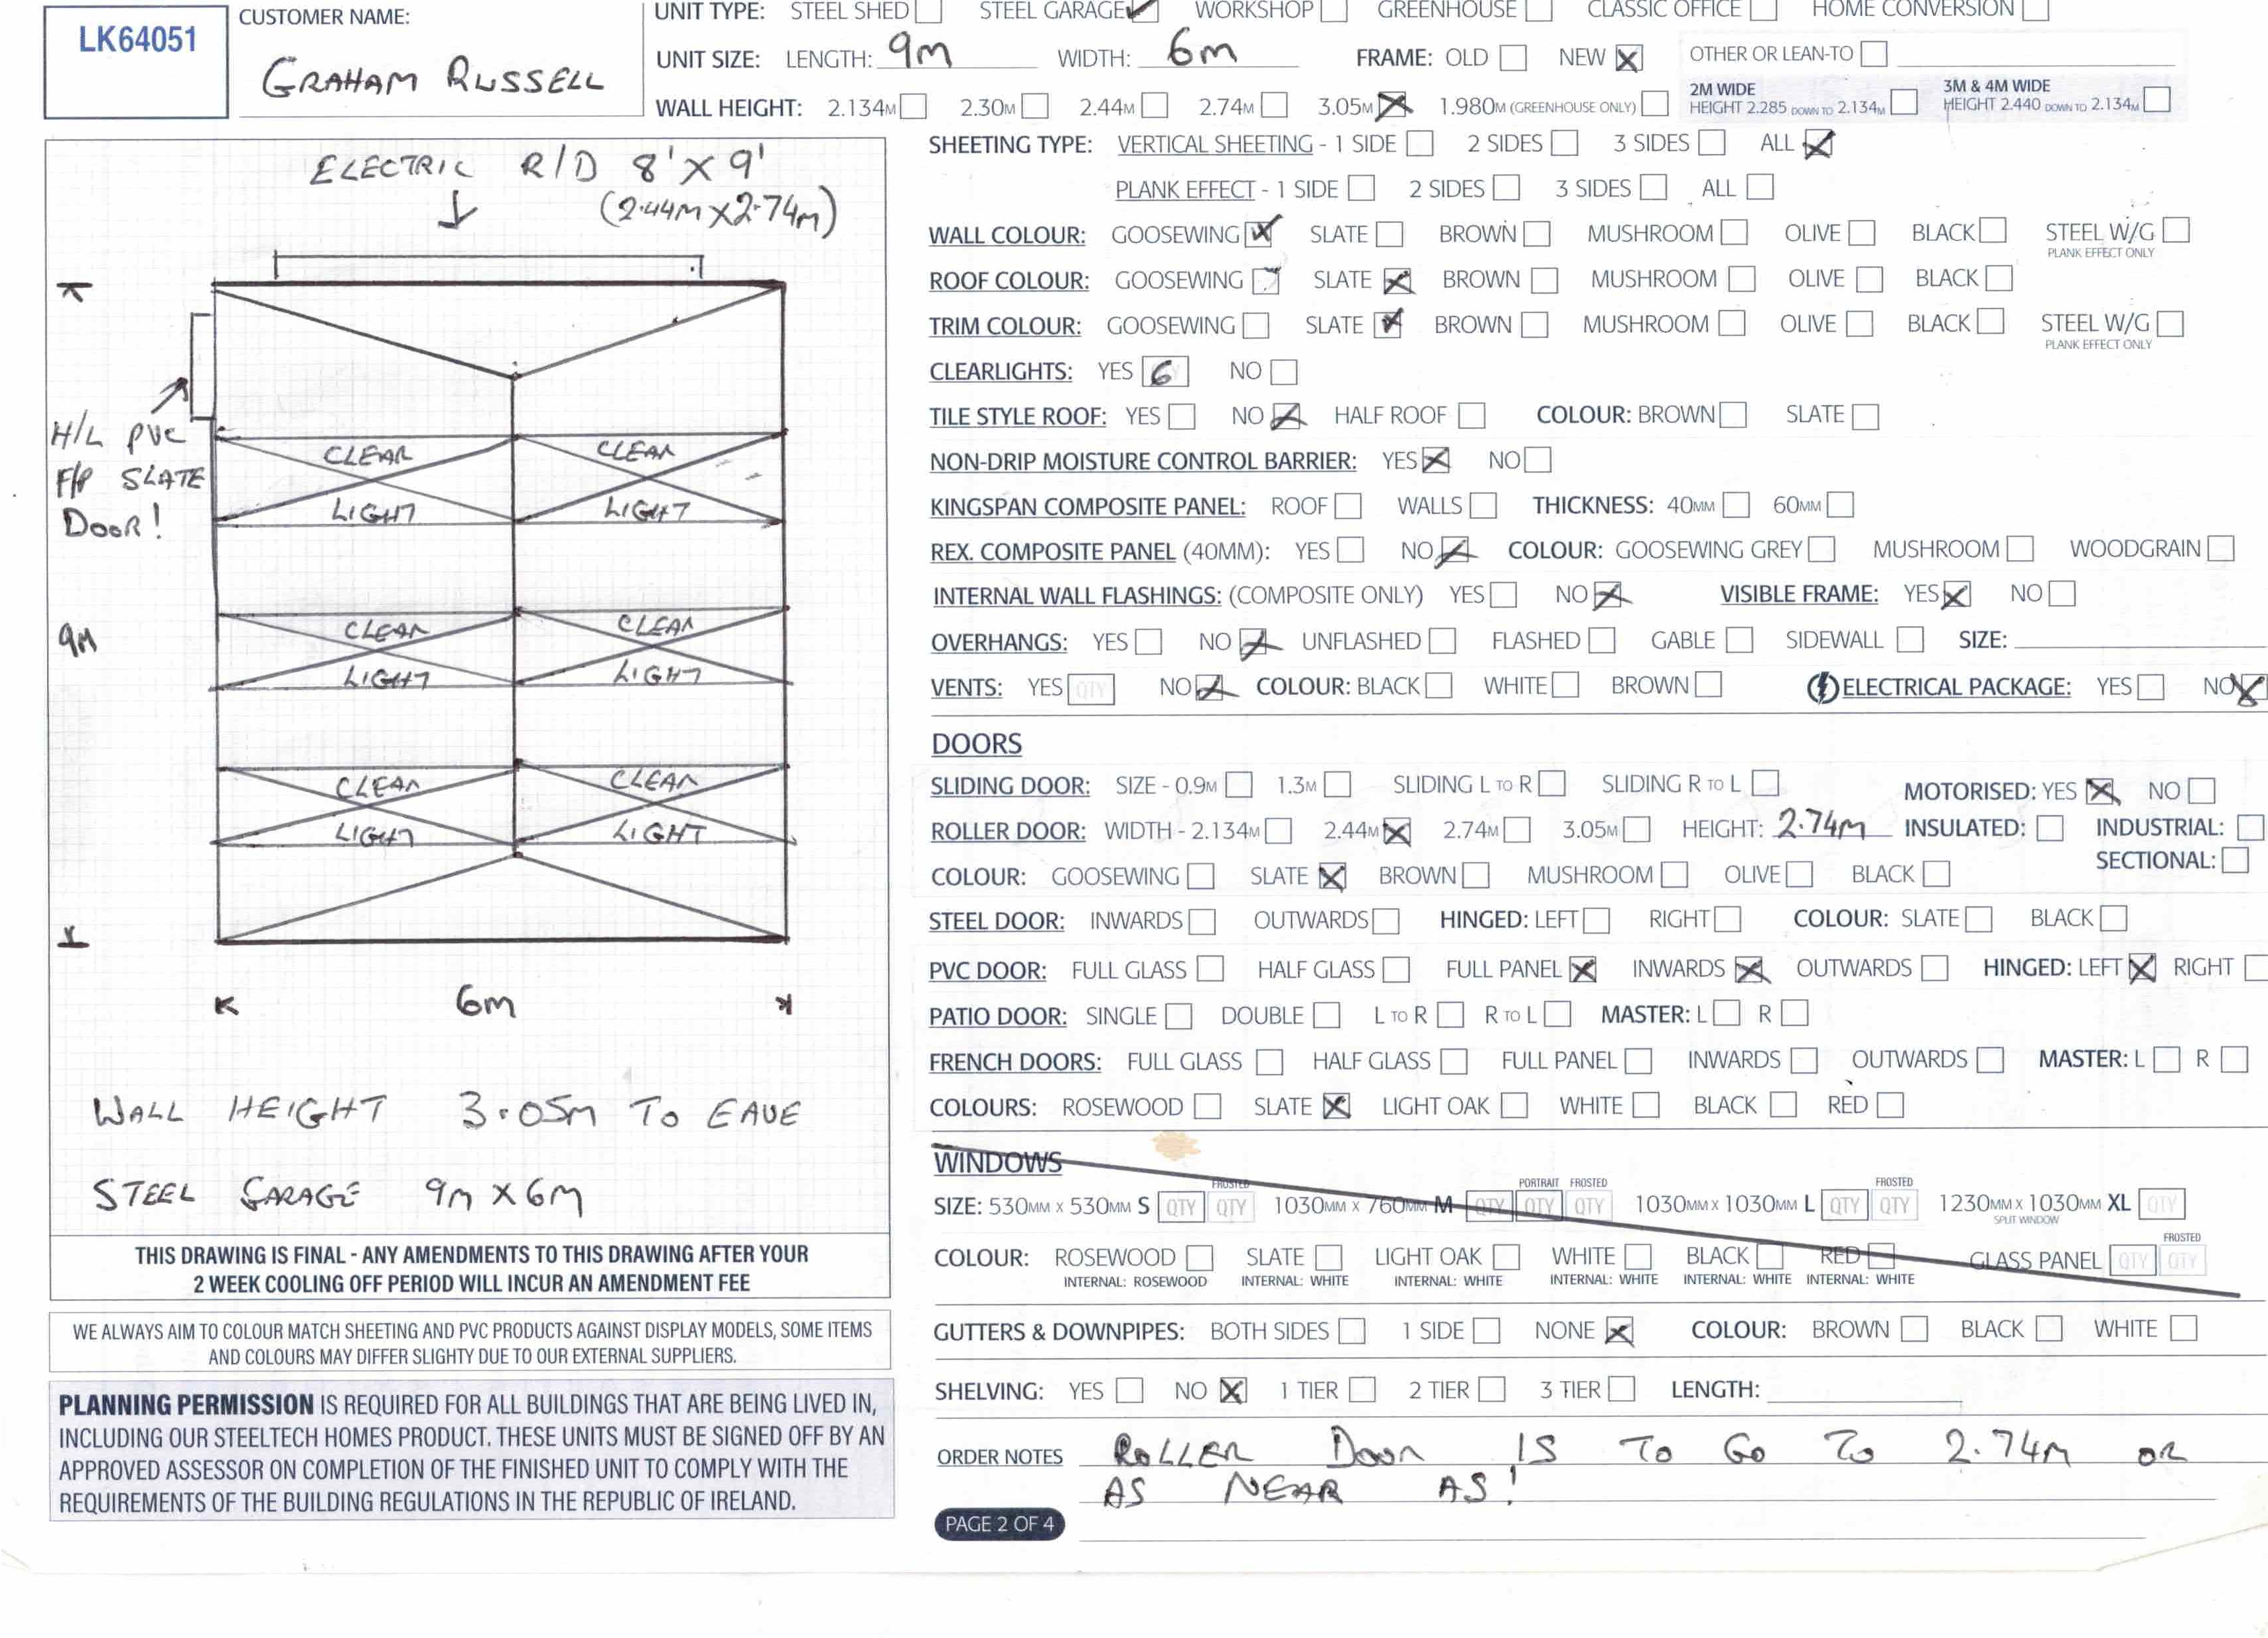 LK64051
CUSTOMER NAME:
GRAHAM RUSSELL
UNIT TYPE: STEEL SHED STEEL GARAGE WORKSHOP GREENHOUSE CLASSIC OFFICE HOME CONVERSION
UNIT SIZE: LENGTH: 9M WIDTH: 6M FRAME: OLD NEW OTHER OR LEAN-TO
WALL HEIGHT: 2.134M 2.30M 2.44M 2.74M 3.05M 1.980M (GREENHOUSE ONLY) 2M WIDE HEIGHT 2.285 DOWN TO 2.134M 3M & 4M WIDE HEIGHT 2.440 DOWN TO 2.134M
ELECTRIC R/D 8' X 9'
(2.44M X 2.74M)
H/L PVC
F/P SLATE
DOOR!
CLEAR CLEAR
LIGHT LIGHT
9M
CLEAR CLEAR
LIGHT LIGHT
CLEAR CLEAR
LIGHT LIGHT
6M
WALL HEIGHT 3.05M TO EAVE
STEEL GARAGE 9M X 6M
THIS DRAWING IS FINAL - ANY AMENDMENTS TO THIS DRAWING AFTER YOUR
2 WEEK COOLING OFF PERIOD WILL INCUR AN AMENDMENT FEE
WE ALWAYS AIM TO COLOUR MATCH SHEETING AND PVC PRODUCTS AGAINST DISPLAY MODELS, SOME ITEMS
AND COLOURS MAY DIFFER SLIGHTY DUE TO OUR EXTERNAL SUPPLIERS.
PLANNING PERMISSION IS REQUIRED FOR ALL BUILDINGS THAT ARE BEING LIVED IN,
INCLUDING OUR STEELTECH HOMES PRODUCT. THESE UNITS MUST BE SIGNED OFF BY AN
APPROVED ASSESSOR ON COMPLETION OF THE FINISHED UNIT TO COMPLY WITH THE
REQUIREMENTS OF THE BUILDING REGULATIONS IN THE REPUBLIC OF IRELAND.
SHEETING TYPE: VERTICAL SHEETING - 1 SIDE 2 SIDES 3 SIDES ALL
PLANK EFFECT - 1 SIDE 2 SIDES 3 SIDES ALL
WALL COLOUR: GOOSEWING SLATE BROWN MUSHROOM OLIVE BLACK STEEL W/G
PLANK EFFECT ONLY
ROOF COLOUR: GOOSEWING SLATE BROWN MUSHROOM OLIVE BLACK
TRIM COLOUR: GOOSEWING SLATE BROWN MUSHROOM OLIVE BLACK STEEL W/G
PLANK EFFECT ONLY
CLEARLIGHTS: YES 6 NO
TILE STYLE ROOF: YES NO HALF ROOF COLOUR: BROWN SLATE
NON-DRIP MOISTURE CONTROL BARRIER: YES NO
KINGSPAN COMPOSITE PANEL: ROOF WALLS THICKNESS: 40MM 60MM
REX. COMPOSITE PANEL (40MM): YES NO COLOUR: GOOSEWING GREY MUSHROOM WOODGRAIN
INTERNAL WALL FLASHINGS: (COMPOSITE ONLY) YES NO VISIBLE FRAME: YES NO
OVERHANGS: YES NO UNFLASHED FLASHED GABLE SIDEWALL SIZE:
VENTS: YES QTY NO COLOUR: BLACK WHITE BROWN ELECTRICAL PACKAGE: YES NO
DOORS
SLIDING DOOR: SIZE - 0.9M 1.3M SLIDING L TO R SLIDING R TO L MOTORISED: YES NO
ROLLER DOOR: WIDTH - 2.134M 2.44M 2.74M 3.05M HEIGHT: 2.74M INSULATED: INDUSTRIAL:
SECTIONAL:
COLOUR: GOOSEWING SLATE BROWN MUSHROOM OLIVE BLACK
STEEL DOOR: INWARDS OUTWARDS HINGED: LEFT RIGHT COLOUR: SLATE BLACK
PVC DOOR: FULL GLASS HALF GLASS FULL PANEL INWARDS OUTWARDS HINGED: LEFT RIGHT
PATIO DOOR: SINGLE DOUBLE L TO R R TO L MASTER: L R
FRENCH DOORS: FULL GLASS HALF GLASS FULL PANEL INWARDS OUTWARDS MASTER: L R
COLOURS: ROSEWOOD SLATE LIGHT OAK WHITE BLACK RED
WINDOWS
FROSTED PORTRAIT FROSTED FROSTED
SIZE: 530MM X 530MM S QTY QTY 1030MM X 760MM M QTY QTY QTY 1030MM X 1030MM L QTY QTY 1230MM X 1030MM XL QTY
SPLIT WINDOW
FROSTED
COLOUR: ROSEWOOD SLATE LIGHT OAK WHITE BLACK RED GLASS PANEL QTY QTY
INTERNAL: ROSEWOOD INTERNAL: WHITE INTERNAL: WHITE INTERNAL: WHITE INTERNAL: WHITE INTERNAL: WHITE
GUTTERS & DOWNPIPES: BOTH SIDES 1 SIDE NONE COLOUR: BROWN BLACK WHITE
SHELVING: YES NO 1 TIER 2 TIER 3 TIER LENGTH:
ORDER NOTES ROLLER DOOR IS TO GO TO 2.74M OR
AS NEAR AS!
PAGE 2 OF 4